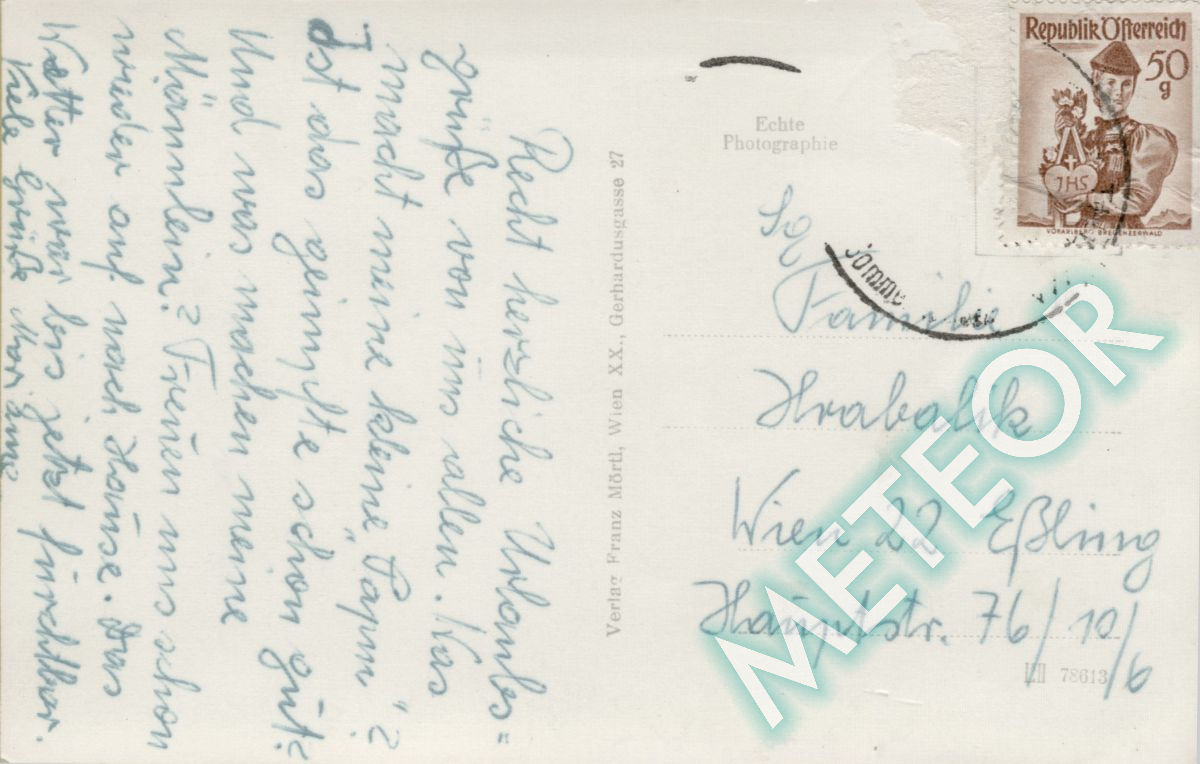 Recht herzliche Urlaubs=
grüße von uns allen. Was
macht meine kleine "Papum"?
Ist das geimpfte schon gut?
Und was machen meine
Männlein? Freuen uns schon
wieder auf nach Hause. Das
Wetter war bis jetzt furchtbar.
Viele Grüße
Verlag Franz Mörtl, Wien XX., Gerhardusgasse 27
Echte
Photographie
Republik Österreich
50
g
JHS
VORARLBERG BREGENZERWALD
Familie
Hrabalik
Wien 22 Eßling
Hauptstr. 76/10/6
78613
METEOR